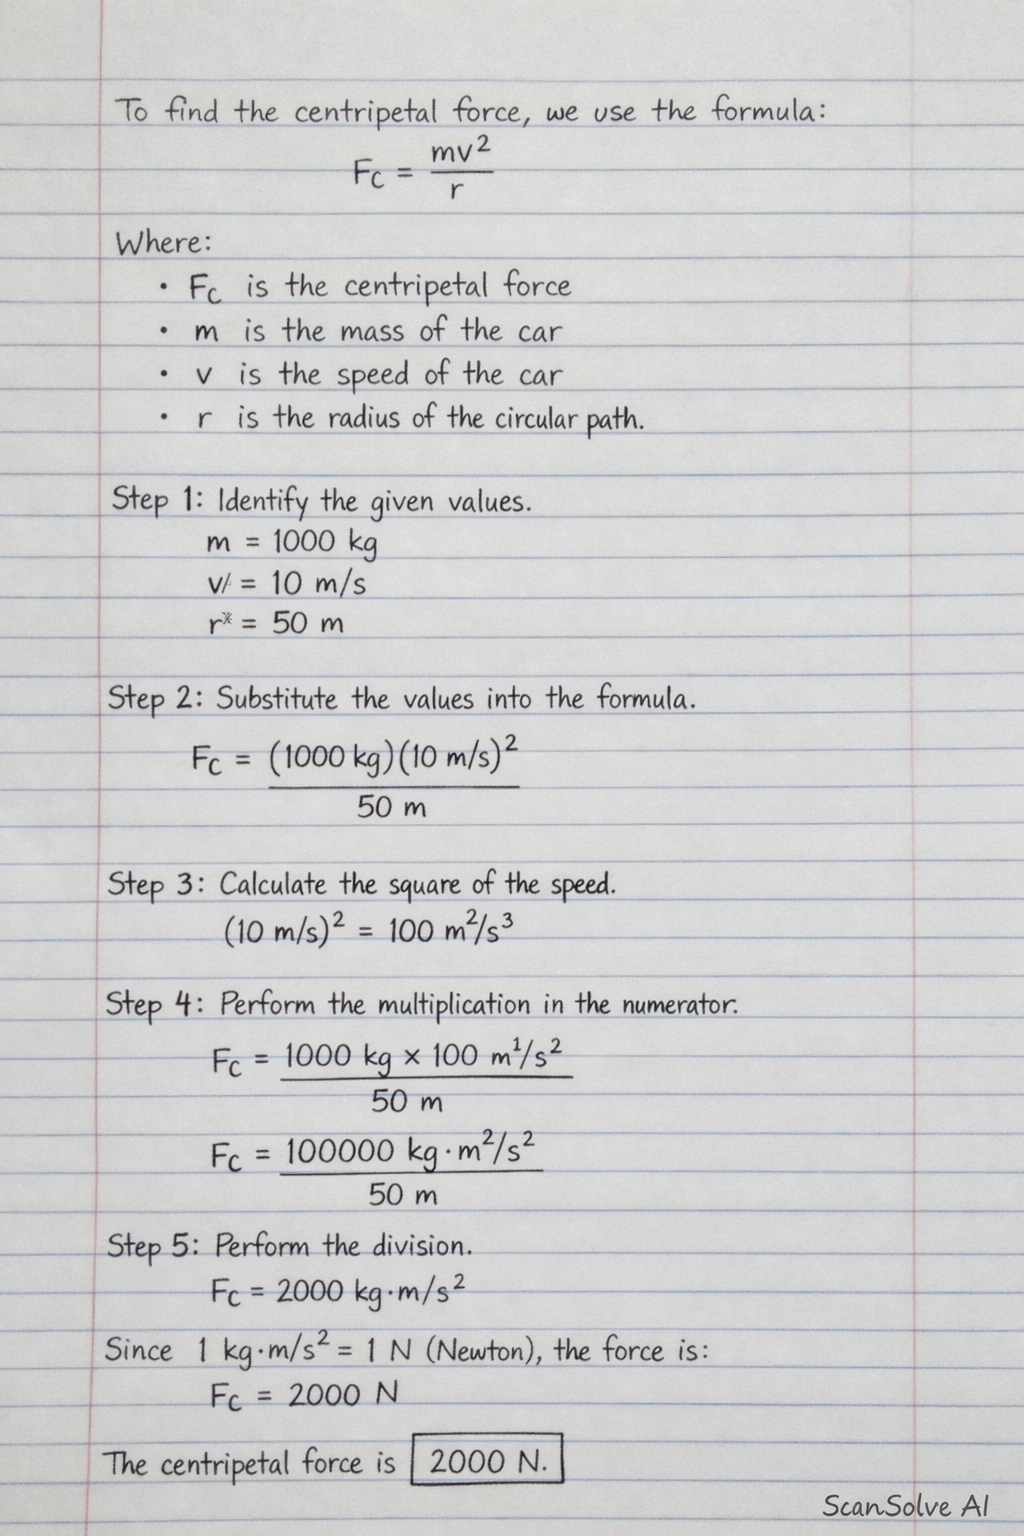 To find the centripetal force, we use the formula:
Fc = mv²/r
Where:
• Fc is the centripetal force
• m is the mass of the car
• v is the speed of the car
• r is the radius of the circular path.
Step 1: Identify the given values.
m = 1000 kg
v/ = 10 m/s
r* = 50 m
Step 2: Substitute the values into the formula.
Fc = (1000 kg)(10 m/s)²
50 m
Step 3: Calculate the square of the speed.
(10 m/s)² = 100 m²/s³
Step 4: Perform the multiplication in the numerator.
Fc = 1000 kg × 100 m¹/s²
50 m
Fc = 100000 kg·m²/s²
50 m
Step 5: Perform the division.
Fc = 2000 kg·m/s²
Since 1 kg·m/s² = 1 N (Newton), the force is:
Fc = 2000 N
The centripetal force is 2000 N.
ScanSolve AI